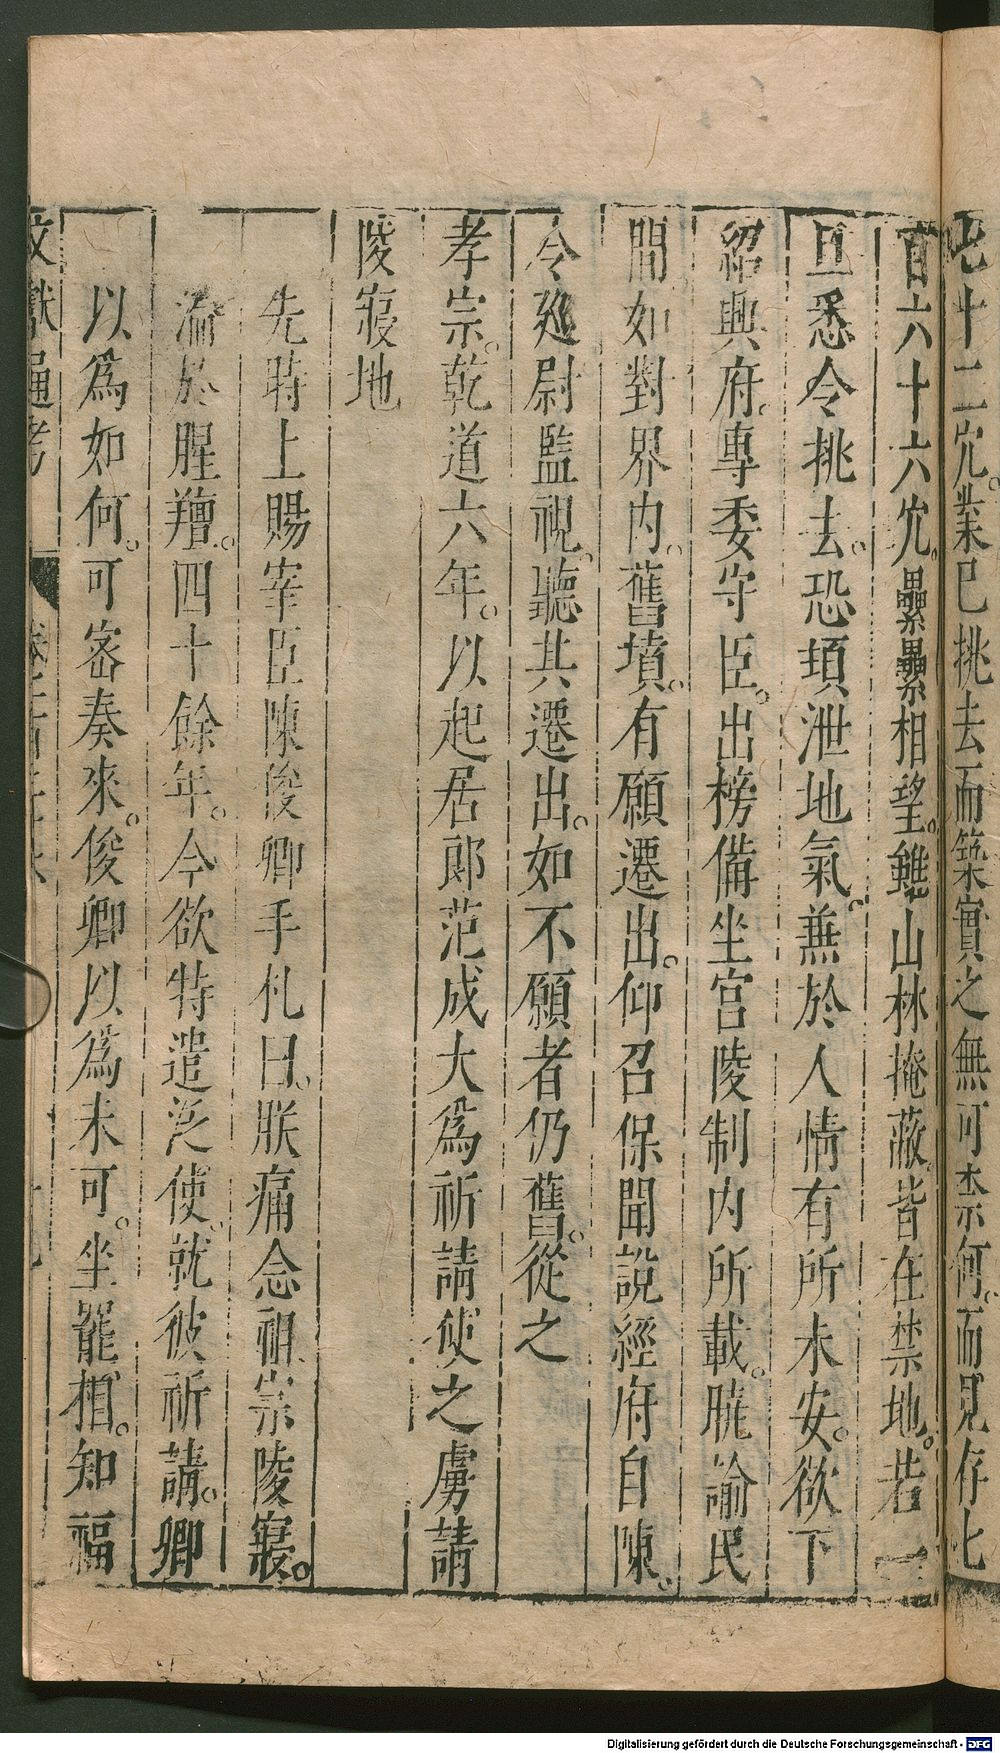 十二穴。業已挑去而築實之無可柰何。而見存七
百六十六穴。纍纍相望。雖山林掩蔽。皆在禁地。若一
旦悉令挑去。恐頊泄地氣。兼於人情有所未安。欲下
紹興府。專委守臣。出榜備坐宫陵制内所載。曉諭民
間如對界内。舊墳。有願遷出。仰召保聞說經府自陳。
令廵尉監視。聽其遷出。如不願者仍舊。從之
孝宗。乾道六年。以起居郎范成大爲祈請使之虜請
陵寢地
先時上賜宰臣陳俊卿手札曰。朕痛念祖宗陵寢。
淪於腥羶。四十餘年。今欲特遣泛使。就彼祈請。卿
以爲如何。可密奏來。俊卿以爲未可。坐罷相。知福
文獻通考
Digitalisierung gefördert durch die Deutsche Forschungsgemeinschaft - DFG